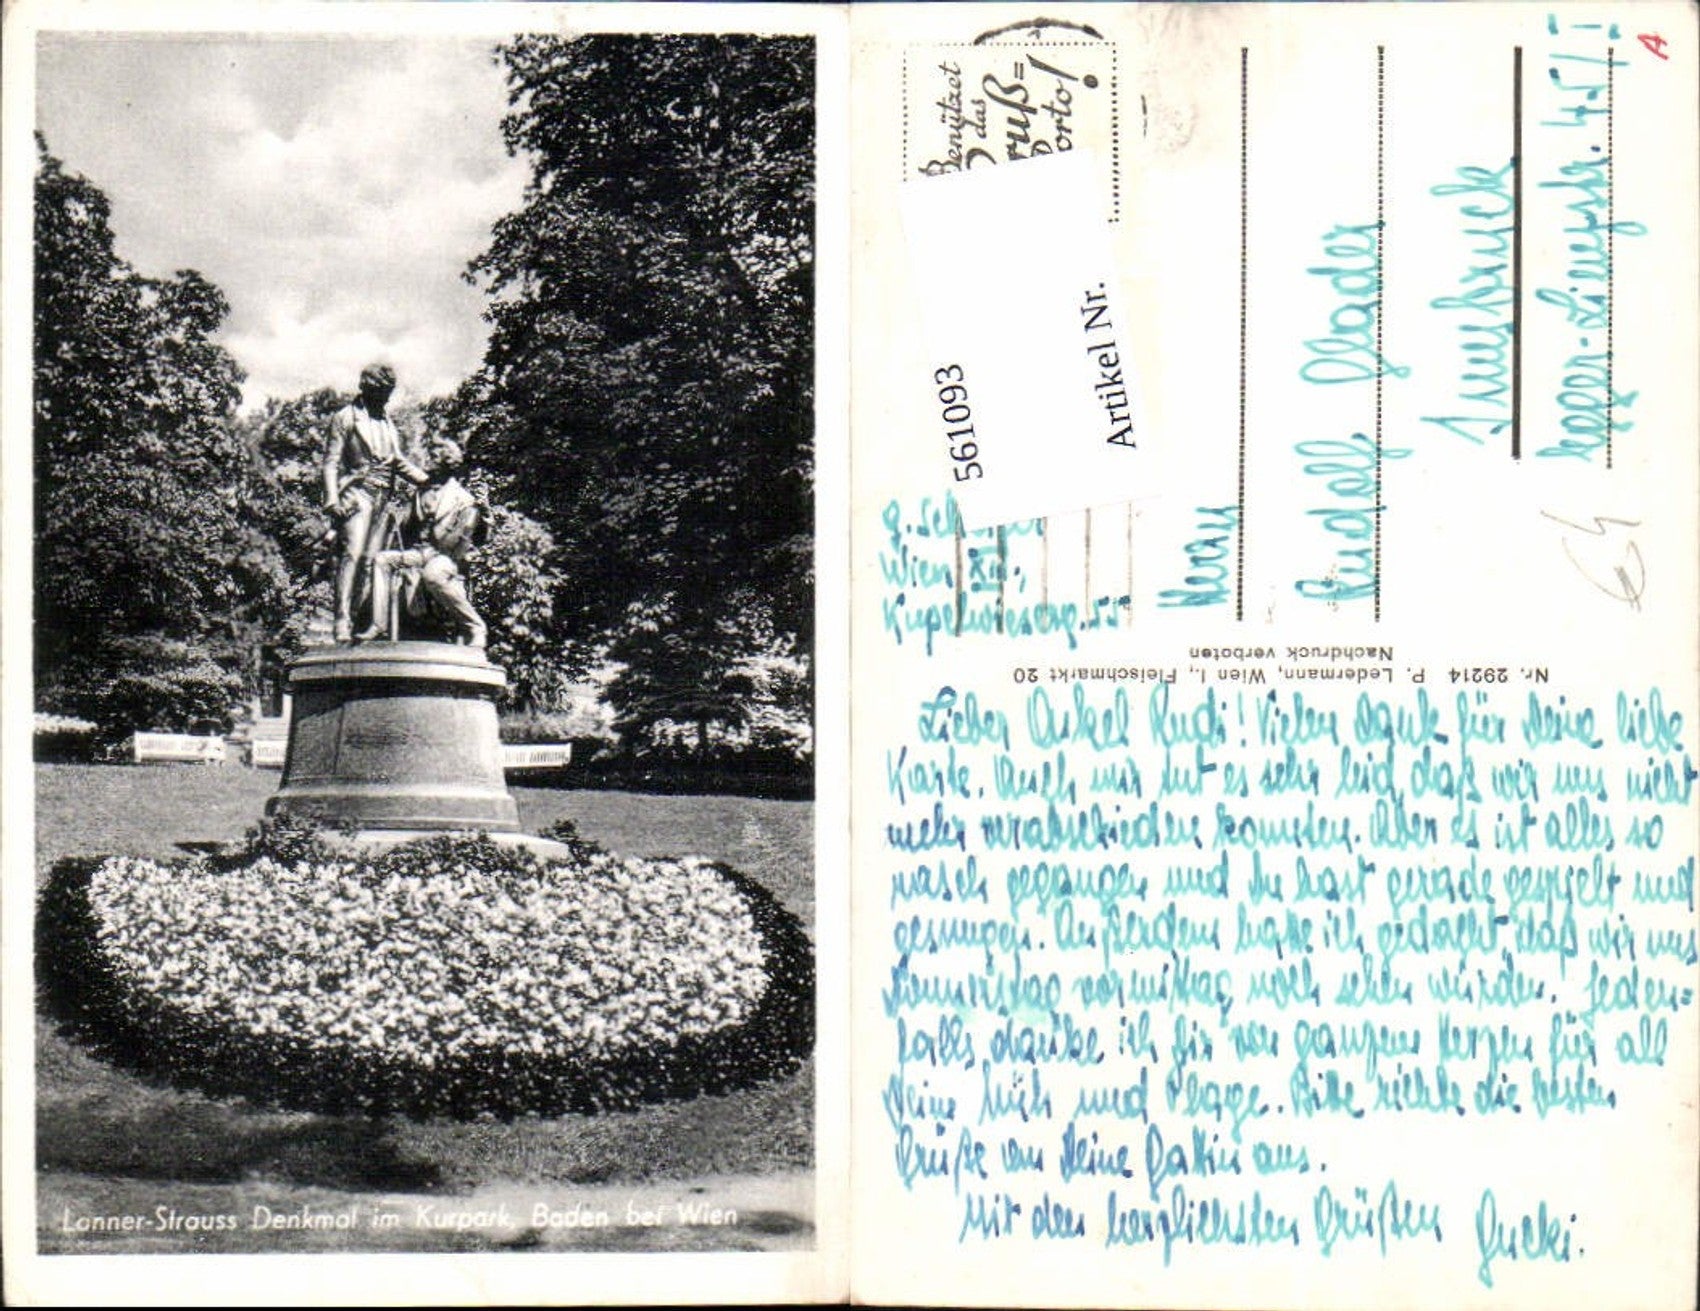 Lanner-Strauss Denkmal im Kurpark, Baden bei Wien
Benützet
das
ruß=
orto!
561093
Artikel Nr.
Wien XIII.,
Kupelwieserg. 55
Herrn
Rudolf
Innsbruck
Egger-Lienzstr. 45/I
A
Nr. 29214 P. Ledermann, Wien I., Fleischmarkt 20
Nachdruck verboten
Lieber Onkel Rudi! Vielen Dank für Deine liebe
Karte. Auch mir tut es sehr leid, daß wir uns nicht
mehr verabschieden konnten. Aber es ist alles so
rasch gegangen und Du hast gerade gespielt und
gesungen. Außerdem hatte ich gedacht, daß wir uns
Donnerstag vormittag noch sehen würden. Jeden=
falls danke ich Dir von ganzem Herzen für all
Deine Müh und Plage. Bitte richte die besten
Grüße an Deine Gattin aus.
Mit den herzlichsten Grüßen